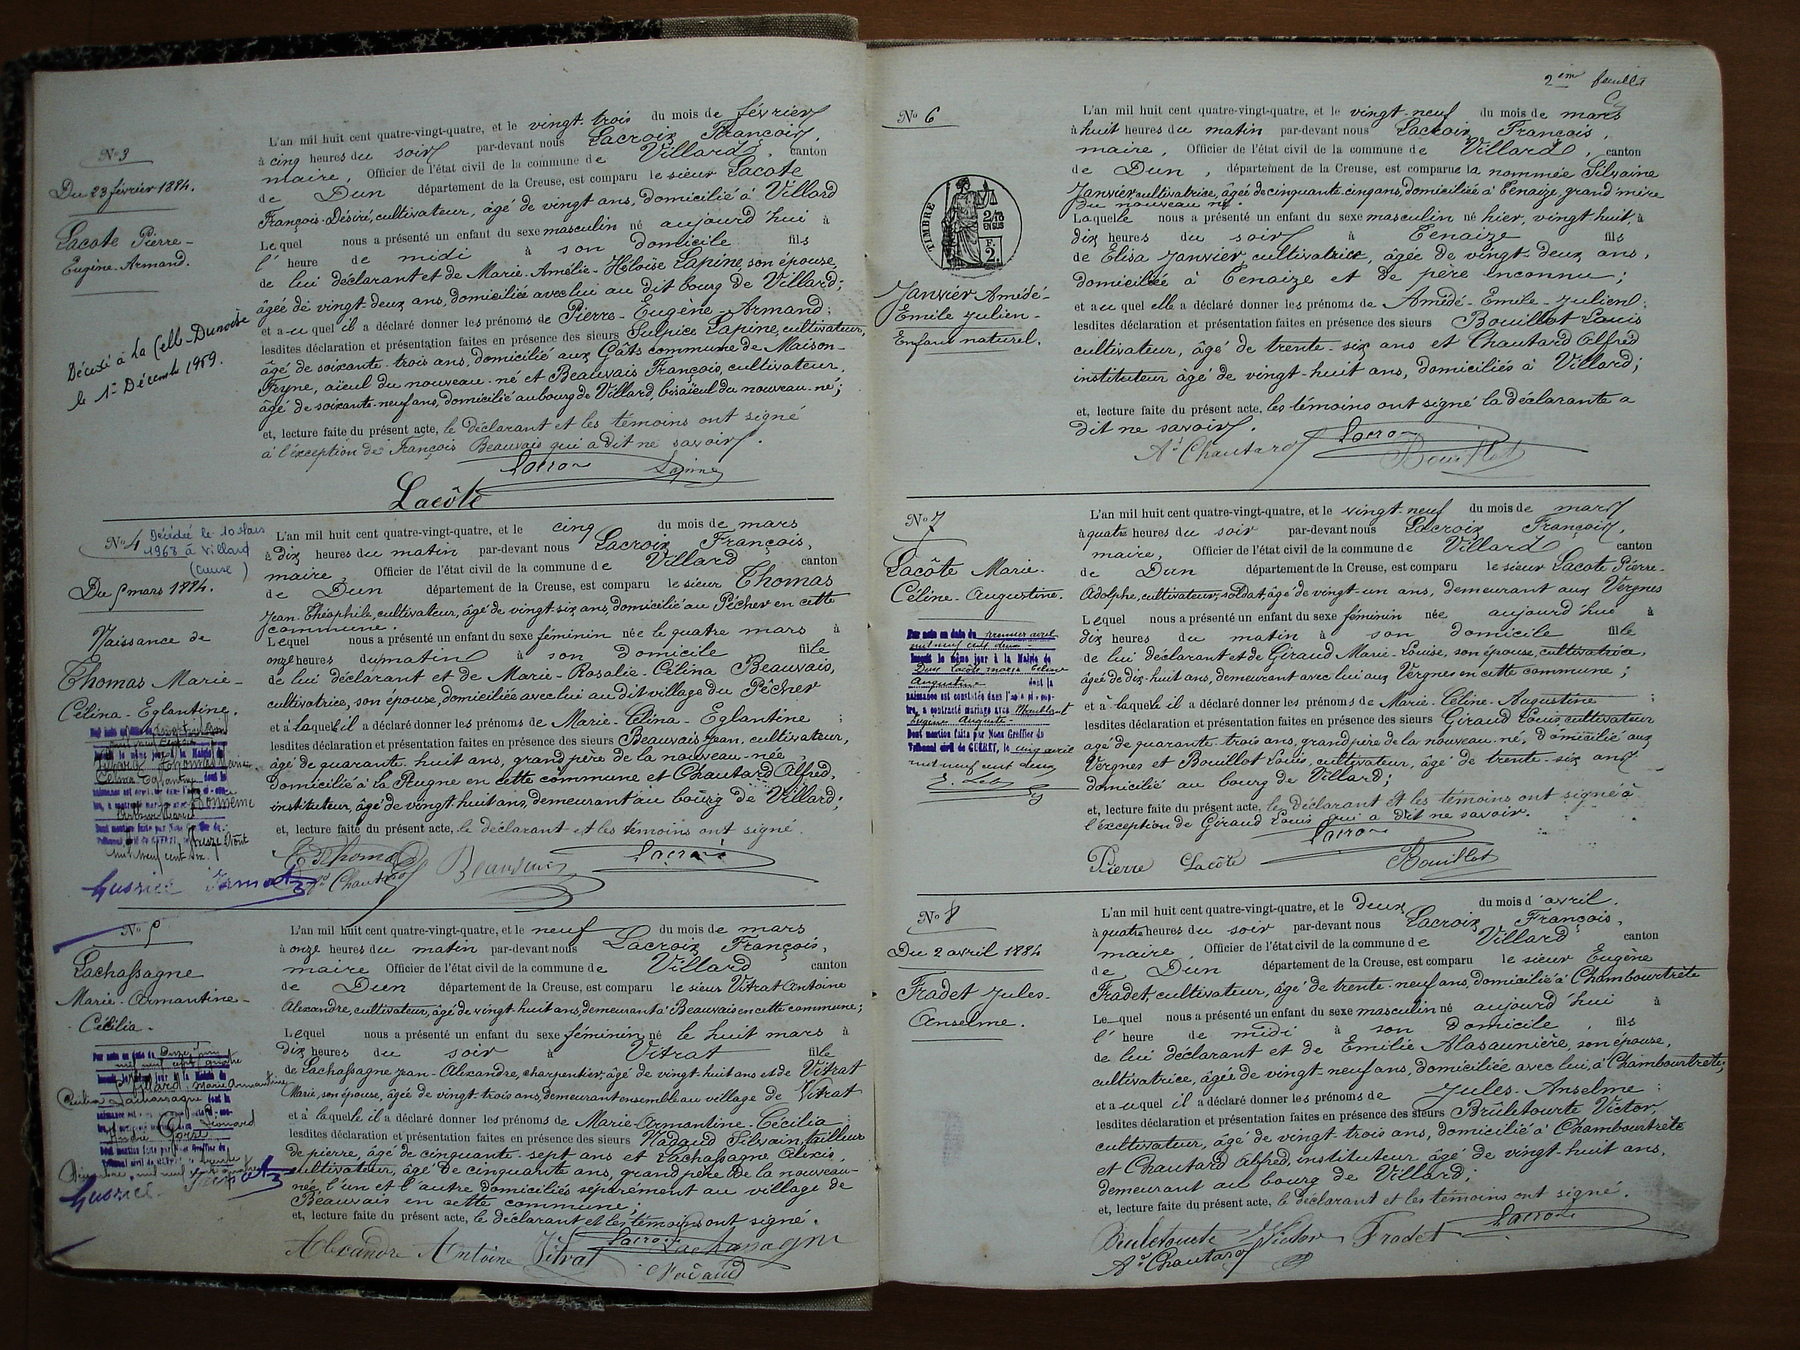 No 3
Du 23 février 1884.
Lacote Pierre-
Eugène-Armand.
Décédé à La Celle-Dunoise
le 1er Décembre 1969.
L'an mil huit cent quatre-vingt-quatre, et le vingt-trois du mois de février
à cinq heures du soir par-devant nous Lacroix François,
maire, Officier de l'état civil de la commune de Villard, canton
de Dun département de la Creuse, est comparu le sieur Lacote
François-Désiré, cultivateur, âgé de vingt ans, domicilié à Villard
Lequel nous a présenté un enfant du sexe masculin né aujourd'hui à
l'heure de midi à son domicile fils
de lui déclarant et de Marie-Amélie-Héloïse Lapine, son épouse,
âgée de vingt-deux ans, domiciliée avec lui au dit bourg de Villard;
et auquel il a déclaré donner les prénoms de Pierre-Eugène-Armand;
lesdites déclaration et présentation faites en présence des sieurs Sulpice Lapine, cultivateur,
âgé de soixante-trois ans, domicilié aux Gâts commune de Maison-
Feyne, aïeul du nouveau-né et Beauvais François, cultivateur,
âgé de soixante-neuf ans, domicilié au bourg de Villard, bisaïeul du nouveau-né;
et, lecture faite du présent acte, le déclarant et les témoins ont signé
à l'exception de François Beauvais qui a dit ne savoir.
Lacroix Lapine
Lacôte
No 4 Décédée le 10 Mars
1968 à Villard
(Creuse)
Du 5 mars 1884.
Naissance de
Thomas Marie-
Célina-Eglantine.
L'an mil huit cent quatre-vingt-quatre, et le cinq du mois de mars
à dix heures du matin par-devant nous Lacroix François,
maire Officier de l'état civil de la commune de Villard canton
de Dun département de la Creuse, est comparu le sieur Thomas
Jean-Théophile, cultivateur, âgé de vingt-six ans, domicilié au Pêcher en cette
commune.
Lequel nous a présenté un enfant du sexe féminin née le quatre mars à
onze heures du matin à son domicile fille
de lui déclarant et de Marie-Rosalie-Célina Beauvais,
cultivatrice, son épouse, domiciliée avec lui au dit village du Pêcher
et à laquelle il a déclaré donner les prénoms de Marie-Célina-Eglantine ;
lesdites déclaration et présentation faites en présence des sieurs Beauvais Jean, cultivateur,
âgé de quarante-huit ans, grand père de la nouveau-née,
Domicilié à la Rugne en cette commune et Chautard Alfred,
instituteur, âgé de vingt huit ans, demeurant au bourg de Villard;
et, lecture faite du présent acte, le déclarant et les témoins ont signé
Thomas Beauvais Lacroix
Ad Chautard
No 5
Lachassagne
Marie-Armantine-
Cécilia.
L'an mil huit cent quatre-vingt-quatre, et le neuf du mois de mars
à onze heures du matin par-devant nous Lacroix François,
maire Officier de l'état civil de la commune de Villard canton
de Dun département de la Creuse, est comparu le sieur Vitrat Antoine
Alexandre, cultivateur, âgé de vingt-huit ans, demeurant à Beauvais en cette commune;
Lequel nous a présenté un enfant du sexe féminin né le huit mars à
dix heures du soir à Vitrat fille
de Lachassagne Jean-Alexandre, charpentier, âgé de vingt-huit ans et de Vitrat
Marie, son épouse, âgée de vingt trois ans, demeurant ensemble au village de Vitrat
et à laquelle il a déclaré donner les prénoms de Marie-Armantine-Cécilia
lesdites déclaration et présentation faites en présence des sieurs Nadaud Silvain, tailleur
de pierre, âgé de cinquante-sept ans et Lachassagne Alexis,
cultivateur, âgé de cinquante ans, grand père de la nouveau-
née, l'un et l'autre domiciliés séparément au village de
Beauvais en cette commune;
et, lecture faite du présent acte, le déclarant et les témoins ont signé.
Lacroix Lachassagne
Alexandre Antoine Vitrat
Nadaud
2ème feuillet
No 6
TIMBRE
Janvier Amédé-
Emile Julien-
Enfant naturel.
L'an mil huit cent quatre-vingt-quatre, et le vingt-neuf du mois de mars
à huit heures du matin par-devant nous Lacroix François,
maire, Officier de l'état civil de la commune de Villard, canton
de Dun, département de la Creuse, est comparue la nommée Silvaine
Janvier, cultivatrice, âgée de cinquante-cinq ans, domiciliée à Eenaize, grand'mère
du nouveau né.
Laquelle nous a présenté un enfant du sexe masculin né hier, vingt huit, à
dix heures du soir à Eenaize fils
de Elisa Janvier, cultivatrice, âgée de vingt-deux ans,
domiciliée à Eenaize et de père inconnu;
et auquel elle a déclaré donner les prénoms de Amédé-Emile-Julien;
lesdites déclaration et présentation faites en présence des sieurs Bouillot Louis
cultivateur, âgé de trente-six ans et Chautard Alfred
instituteur âgé de vingt-huit ans, domiciliés à Villard;
et, lecture faite du présent acte, les témoins ont signé la déclarante a
dit ne savoir.
Ad Chautard Lacroix
Bouillot
No 7
Lacôte Marie-
Céline-Augustine.
Par acte en date du premier avril
mil neuf cent deux
Inscrit le même jour à la Mairie de
Dun Lacôte Marie Céline
Augustine dont la
naissance est constatée dans l'acte ci-con-
tre, a contracté mariage avec
Eugène Auguste
Dont mention faite par Nous Greffier du
Tribunal civil de GUÉRET, le cinq avril
mil neuf cent deux
L'an mil huit cent quatre-vingt-quatre, et le vingt-neuf du mois de mars
à quatre heures du soir par-devant nous Lacroix François,
maire, Officier de l'état civil de la commune de Villard canton
de Dun département de la Creuse, est comparu le sieur Lacote Pierre-
Adolphe, cultivateur, soldat, âgé de vingt-un ans, demeurant aux Vergnes
Lequel nous a présenté un enfant du sexe féminin née aujourd'hui à
dix heures du matin à son domicile fille
de lui déclarant et de Giraud Marie-Louise, son épouse, cultivatrice,
âgée de dix-huit ans, demeurant avec lui aux Vergnes en cette commune;
et à laquelle il a déclaré donner les prénoms de Marie-Céline-Augustine ;
lesdites déclaration et présentation faites en présence des sieurs Giraud Louis, cultivateur
âgé de quarante-trois ans, grand père de la nouveau-né, domicilié aux
Vergnes et Bouillot Louis, cultivateur, âgé de trente-six ans
domicilié au bourg de Villard;
et, lecture faite du présent acte, le déclarant et les témoins ont signé à
l'exception de Giraud Louis qui a dit ne savoir.
Lacroix
Pierre Lacôte Bouillot
No 8
Du 2 avril 1884
Fradet Jules-
Anselme.
L'an mil huit cent quatre-vingt-quatre, et le deux du mois d'avril.
à quatre heures du soir par-devant nous Lacroix François,
maire, Officier de l'état civil de la commune de Villard canton
de Dun département de la Creuse, est comparu le sieur Eugène
Fradet, cultivateur, âgé de trente-neuf ans, domicilié à Chambourtrète
Lequel nous a présenté un enfant du sexe masculin né aujourd'hui à
l'heure de midi à son domicile, fils
de lui déclarant et de Emilie Alasaunière, son épouse,
cultivatrice, âgée de vingt-neuf ans, domiciliée avec lui, à Chambourtrète;
et auquel il a déclaré donner les prénoms de Jules-Anselme ;
lesdites déclaration et présentation faites en présence des sieurs Brûletourte Victor,
cultivateur, âgé de vingt-trois ans, domicilié à Chambourtrète
et Chautard Alfred, instituteur âgé de vingt-huit ans,
demeurant au bourg de Villard;
et, lecture faite du présent acte, le déclarant et les témoins ont signé.
Bruletourte Victor Fradet Lacroix
Ad Chautard